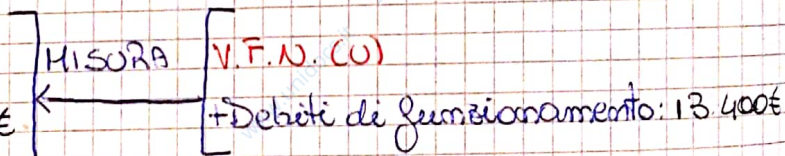 MISURA
V.F.N. (U)
+Debiti di funzionamento: 13.400€
€